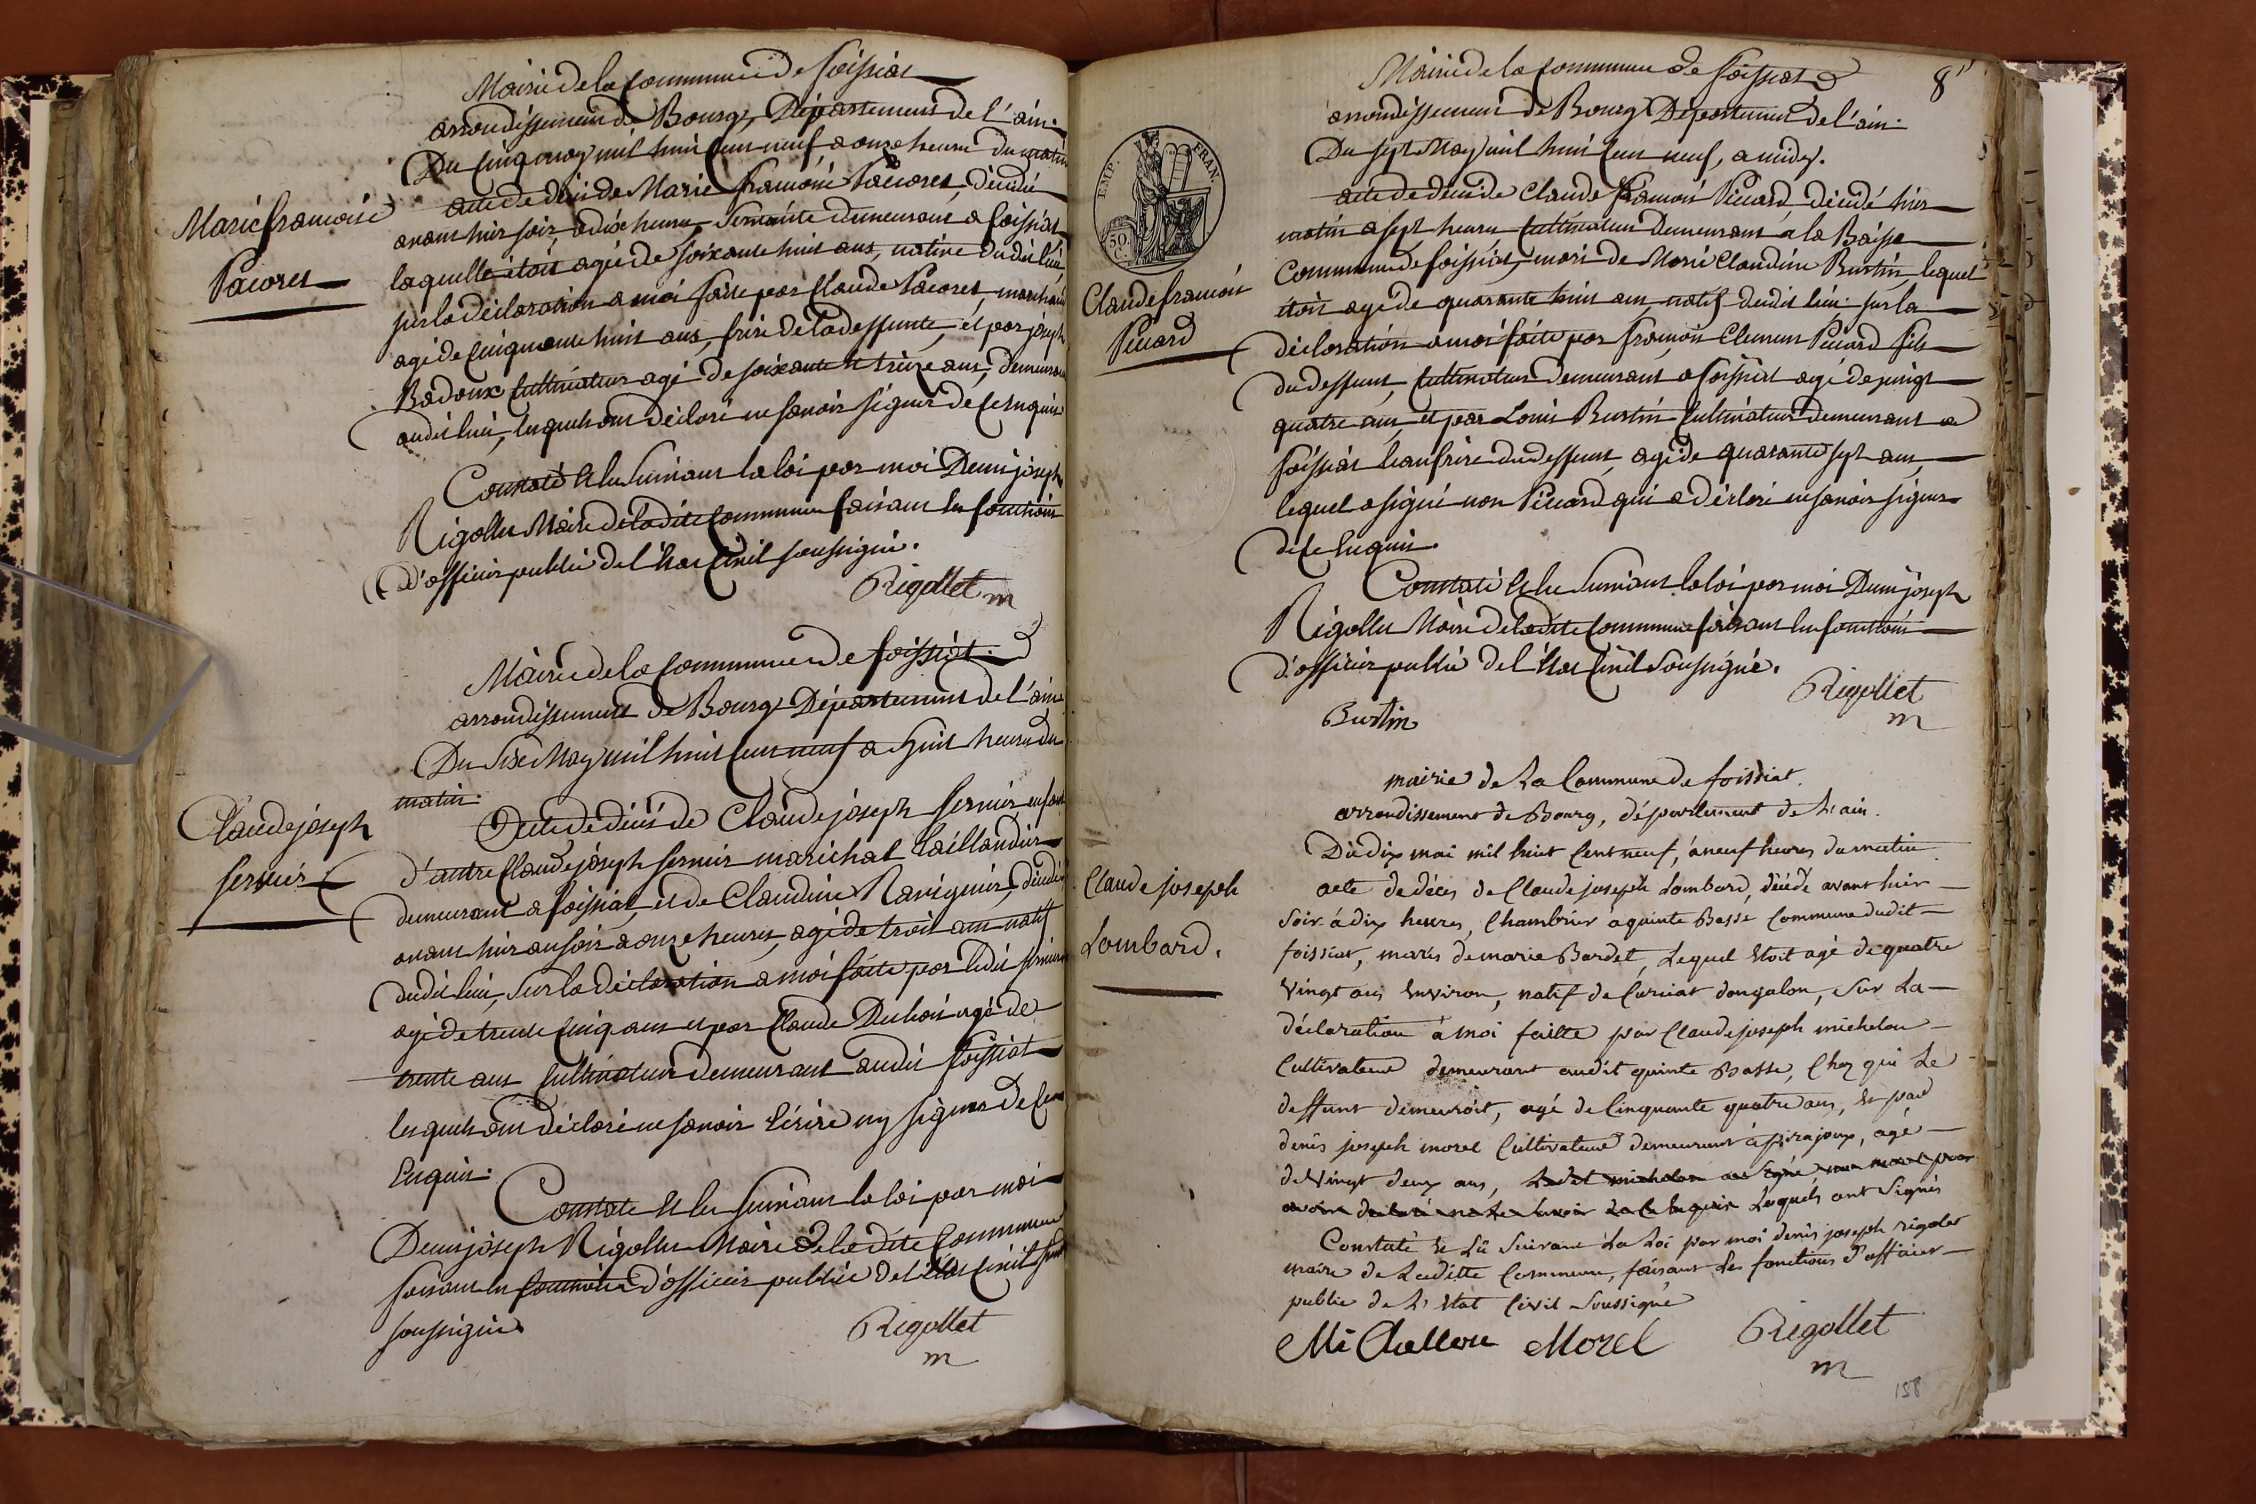 Mairie de la Commune de foissiat
arrondissement de Bourg, Département de l'ain.
Du Cinq may mil huit Cent neuf a onze heures du matin
acte de décés de Marie françoise Pacoret, décédé
avant hier soir, a dix heures, servante demeurant a foissiat
laquelle étoit agé de soixante huit ans, native dudit lieu,
sur la déclaration a moi faite par Claude Pacoret, marchand
agé de Cinquante huit ans, frère de la deffunte, et par joseph
Badoux Cultivateur agé de soixante et treize ans, demeurant
audit lieu, lesquels ont déclaré ne savoir signer de ce enquis
Constaté et lu suivant la loi par moi Denis joseph
Rigollet Maire de ladite Commune faisant les fonctions
d'officier public de l'état Civil soussigné.
Rigollet
m
Marie françoise
Pacoret
Mairie de la Commune de foissiat.
arrondissement de Bourg Département de l'ain
Du Six May mil huit Cent neuf a huit heures du
matin.
Acte de décés de Claude joseph fernier, enfant
d'autre Claude joseph fernier maréchal taillandier
demeurant a foissiat, et de Claudine Ravignier, décédé
avant hier au soir a onze heures, agé de trois ans natif
dudit lieu, sur la déclaration a moi faite par ledit fernier
agé de trente Cinq ans et par Claude agé de
trente ans Cultivateur demeurant audit foissiat
lesquels ont déclaré ne savoir écrire ny signer de ce
Enquis.
Constaté et lu suivant la loi par moi
Denis joseph Rigollet Maire de ladite Commune
faisant les fonctions d'officier public de l'état Civil
soussigné
Rigollet
m
Claude joseph
fernier
8
Mairie de la Commune de foissiat
arrondissement de Bourg Département de l'ain.
Du sept May mil huit Cent neuf, a midy.
acte de décés de Claude françois Picard, décédé hier
matin a sept heures Cultivateur demeurant a la Baisse
Commune de foissiat, mari de Marie Claudine Burtin, lequel
étoit agé de quarante huit ans, natif dudit lieu. sur la
déclaration a moi faite par françois Clement Picard fils
du deffunt, Cultivateur demeurant a foissiat agé de vingt
quatre ans, et par Louis Burtin Cultivateur demeurant a
foissiat beaufrère du deffunt, agé de quarante sept ans,
lequel a signé non Picard qui a déclaré ne savoir signer
de ce Enquis.
Constaté et lu suivant la loi par moi Denis joseph
Rigollet Maire de ladite Commune faisant les fonctions
d'officier public de l'état Civil soussigné.
Rigollet
m
Burtin
EMP. FRAN.
50
C.
Claude françois
Picard
mairie de La Commune de foissiat.
arrondissement de Bourg, département de L'ain.
Du dix mai mil huit Cent neuf, à neuf heures du matin
acte de décés de Claude joseph Lombard, décédé avant hier
soir à dix heures, Chambrier a quinte Basse Commune dudit
foissiat, maris de marie Bardet, Lequel étoit agé de quatre
vingt ans Environ, natif de Curciat dongalon, sur La
déclaration à moi faitte par Claude joseph michelon
Cultivateur demeurant audit quinte Basse, Chez qui Le
deffunt demeuroit, agé de Cinquante quatre ans, et par
denis joseph morel Cultivateur demeurant à pirajoux, agé
de Vingt deux ans, Ledit michelon a signé non morel pour
avoir declaré ne Le savoir de ce Enquis Lesquels ont Signés
Constaté et Lû Suivant La Loi par moi denis joseph rigolet
maire de Laditte Commune, faisant Les fonctions d'officier
public de L'état Civil Soussigné
Mi Chellon Morel Rigollet
m
Claude joseph
Lombard.
158